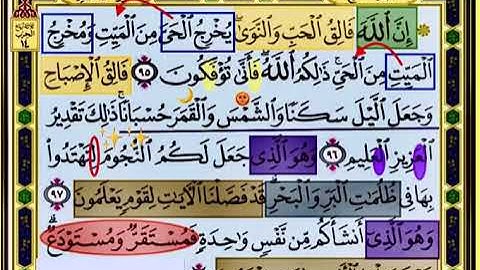 إِنَّ ٱللَّهَ فَالِقُ ٱلْحَبِّ وَٱلنَّوَىٰ يُخْرِجُ ٱلْحَيَّ مِنَ ٱلْمَيِّتِ وَمُخْرِجُ
ٱلْمَيِّتِ مِنَ ٱلْحَيِّ ذَٰلِكُمُ ٱللَّهُ فَأَنَّىٰ تُؤْفَكُونَ ٩٥ فَالِقُ ٱلْإِصْبَاحِ
وَجَعَلَ ٱلَّيْلَ سَكَنًا وَٱلشَّمْسَ وَٱلْقَمَرَ حُسْبَانًا ذَٰلِكَ تَقْدِيرُ
ٱلْعَزِيزِ ٱلْعَلِيمِ ٩٦ وَهُوَ ٱلَّذِى جَعَلَ لَكُمُ ٱلنُّجُومَ لِتَهْتَدُوا۟
بِهَا فِى ظُلُمَٰتِ ٱلْبَرِّ وَٱلْبَحْرِ قَدْ فَصَّلْنَا ٱلْآيَٰتِ لِقَوْمٍ يَعْلَمُونَ ٩٧
وَهُوَ ٱلَّذِىٓ أَنشَأَكُم مِّن نَّفْسٍ وَٰحِدَةٍ فَمُسْتَقَرٌّ وَمُسْتَوْدَعٌ